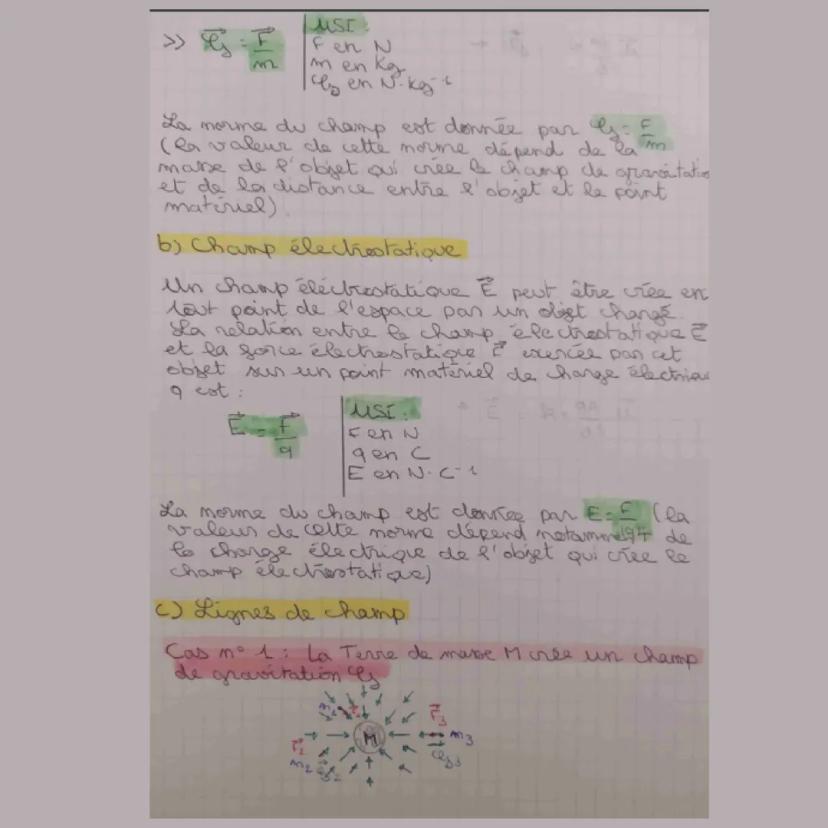 >> G⃗ = F⃗/m
USI :
F en N
m en kg
G en N·kg⁻¹
La norme du champ est donnée par G = F/m
(la valeur de cette norme dépend de la
masse de l'objet qui crée le champ de gravitation
et de la distance entre l'objet et le point
matériel).
b) Champ électrostatique
Un champ électrostatique E⃗ peut être crée en
tout point de l'espace par un objet chargé.
La relation entre le champ électrostatique E⃗
et la force électrostatique F⃗ exercée par cet
objet sur un point matériel de charge électrique
q est :
E⃗ = F⃗/q
USI :
F en N
q en C
E en N·C⁻¹
La norme du champ est donnée par E = F/|q| (la
valeur de cette norme dépend notamment de
la charge électrique de l'objet qui crée le
champ électrostatique)
c) Lignes de champ
Cas n° 1 : La Terre de masse M crée un champ
de gravitation G
m₁
F⃗₃
M
m₃
G₃
F⃗₂
m₂ G⃗₂